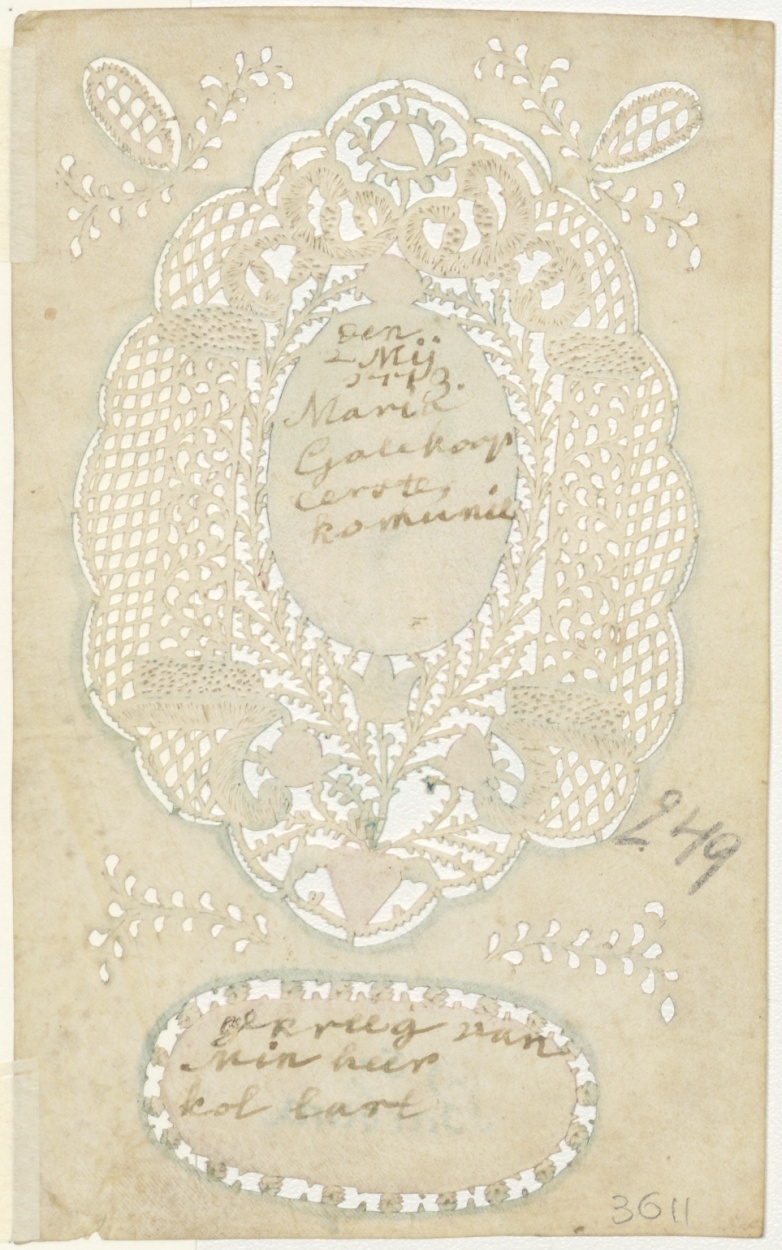 den
2 Mij
1773.
Maria
Galekoop
eerste
komunie
249
gekreeg van
Min heer
kol bart
3611